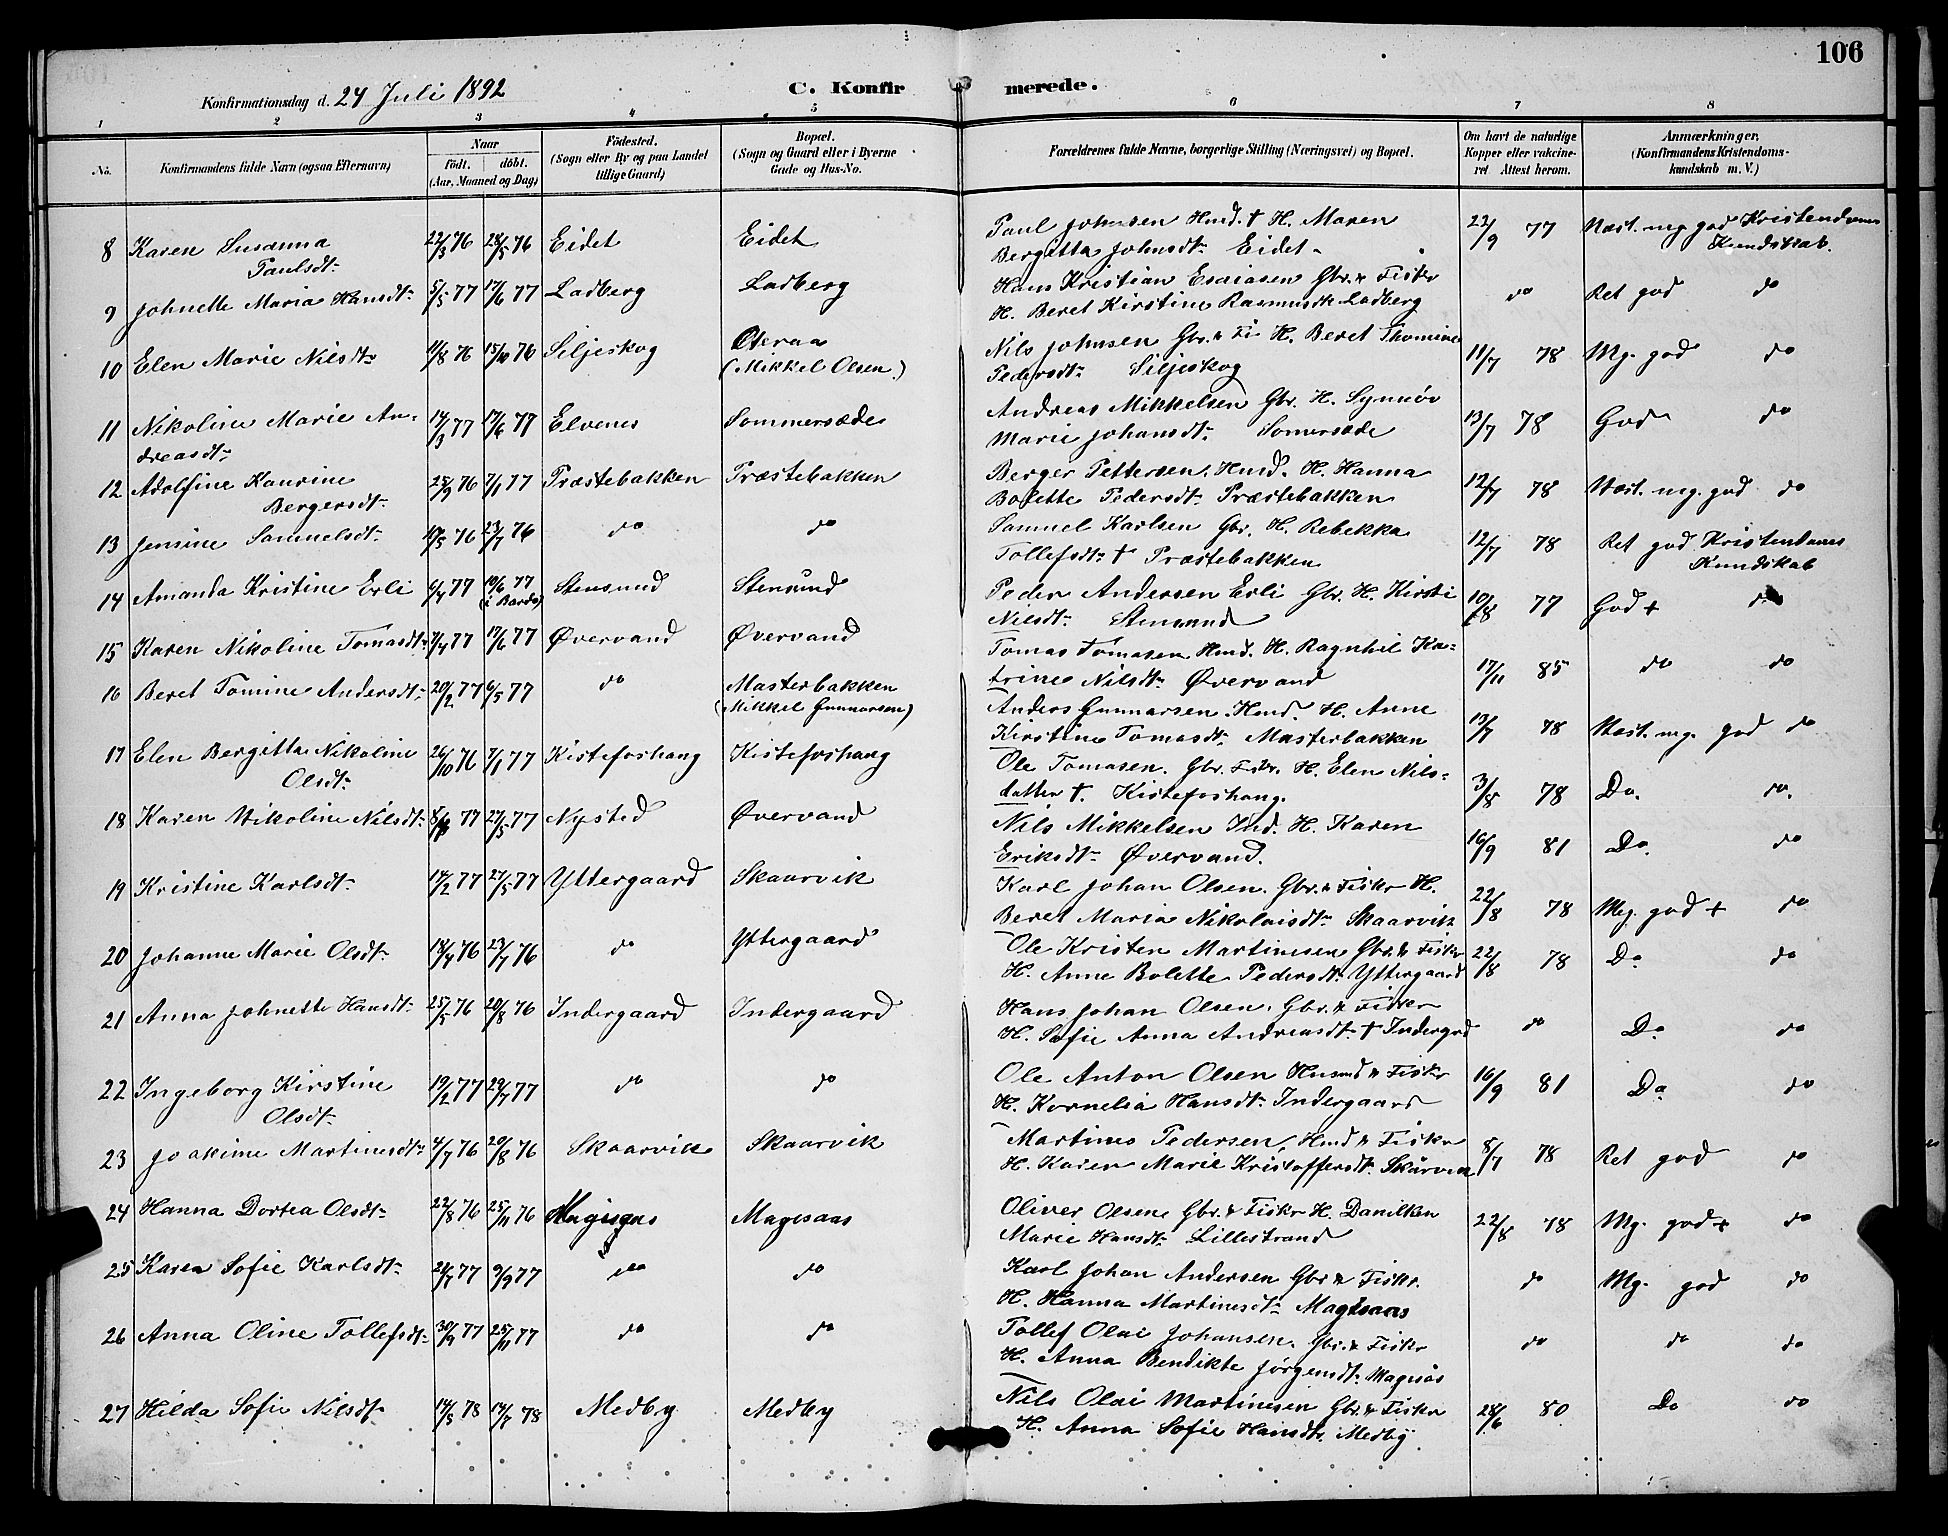 106
Konfirmationsdag d. 24 Juli 1892 C. Konfirmerede.
1 2 3 4 5 6 7 8
No. Konfirmandens fulde Navn (ogsaa Efternavn) Naar födt. döbt. (Aar, Maaned og Dag) Födested. (Sogn eller By og paa Landet tillige Gaard) Bopæl. (Sogn og Gaard eller i Byerne Gade og Hus-No. Forældrenes fulde Navne, borgerlige Stilling (Næringsvei) og Bopæl. Om havt de naturlige Kopper eller vakcineret Attest herom. Anmærkninger. (Konfirmandens Kristendomskundskab m. V.)
8 Karen Susanna 22/3 76 28/5 76 Eidet Eidet Paul Johnsen Hmd. † H. Maren 22/9 77 Mæst. mg. god Kristendoms
Paulsdt. Bergitta Johnsdt. Eidet Kundskab.
9 Johnette Maria Hansdt. 5/5 77 17/6 77 Ladberg Ladberg Hans Kristian Esaiasen Gbr. & Fisker do Ret god do
H. Beret Kirstine Rasmusdt. Ladberg
10 Elen Marie Nilsdt. 11/8 76 15/10 76 Siljeskog Øteraa Nils Johnsen Gbr. & Fi H. Beret Thomine 11/7 78 Mg. god do
(Mikkel Olsen) Pedersdt. Siljeskog
11 Nikoline Marie An- 14/3 77 17/6 77 Elvenes Sommersæde Andreas Mikkelsen Gbr. H. Synnøv 13/7 78 God do
dreasdt. Marie Johansdt. Somersæde
12 Adolfine Kaurine 25/9 76 7/1 77 Præstebakken Præstebakken Berger Pettersen. Hmd. H. Hanna 12/7 78 Mæst. mg. god do
Bergersdt. Bolette Pedersdt. Præstebakken
13 Jensine Samuelsdt. 17/5 76 23/7 76 do do Samuel Karlsen Gbr. H. Rebekka 12/7 78 Ret god Kristendoms
Tollefsdt. † Præstebakken Kundskab
14 Amanda Kristine Erli 6/4 77 10/6 77 Stensund Stensund Peder Andersen Erli Gbr. H. Kirsti 10/8 77 God + do
(i Bardo) Nilsdt. Stensund
15 Karen Nikoline Tomasdt. 7/4 77 17/6 77 Øvervand Øvervand Tomas Tomasen Hmd. H. Ragnhil Ka- 17/11 85 do do
trine Nilsdt. Øvervand
16 Beret Tomine Andersdt. 20/2 77 6/5 77 do Masterbakken Anders Gunnarsen. Hmd. H. Anne 13/7 78 Mæst. mg. god do
(Mikkel Gunnarsen) Kirstine Tomasdt. Masterbakken
17 Elen Bergitta Nikoline 26/10 76 7/1 77 Kistefoshaug Kistefoshaug Ole Tomasen. Gbr. Fisk. H. Elen Nils- 3/8 78 Do. do.
Olsdt. datter †. Kistefoshaug.
18 Karen Nikoline Nilsdt. 77 27/5 77 Nysted Øvervand Nils Mikkelsen Ind. H. Karen 16/9 81 Do. do
Eriksdt. Øvervand.
19 Kristine Karlsdt. 14/2 77 27/5 77 Yttergaard Skaarvik Karl Johan Olsen. Gbr. & Fisker H. 22/8 78 Mg. god + do
Beret Maria Nikolaisdt. Skaarvik
20 Johanne Marie Olsdt. 18/4 76 23/7 76 do Yttergaard Ole Kristen Martinesen Gbr. & Fisker 22/8 78 Do do
H. Anne Bolette Pedersdt. Yttergaard
21 Anna Johnette Hansdt. 25/5 76 20/8 76 Indergaard Indergaard Hans Johan Olsen. Gbr. & Fisker do Do do
H. Sofie Anna Andreasdt. † Indergrd
22 Ingeborg Kirstine 19/2 77 29/7 77 do do Ole Anton Olsen Husmd & Fisker 16/9 81 Do do
Olsdt. H. Kornelia Hansdt. Indergaard
23 Joakime Martinesdt. 4/7 76 20/8 76 Skaarvik Skaarvik Martines Pedersen, Hmd & Fisker 8/7 78 Ret god do
H. Karen Marie Kristoffersdt. Skårvik
24 Hanna Dortea Olsdt. 22/8 76 25/11 76 Magesaas Oliver Olsen Gbr. & Fisker H. Danilken 22/8 78 Mg. god + do
Marie Hansdt. Lillestrand
25 Karen Sofie Karlsdt. 77 9/9 77 do do Karl Johan Andersen Gbr & Fisker. do Mg. god do
H. Hanna Martinesdt. Magesaas
26 Anna Oline Tollefsdt. 30/9 77 25/11 77 do do Tollef Olai Johansen. Gbr. & Fisker do do do
H. Anna Bendikte Jørgensdt. Magesås
27 Hilda Sofie Nilsdt. 14/5 78 14/7 78 Medby Medby Nils Olai Martinesen Gbr. & Fisker 28/6 80 Do do
H. Anna Sofie Hansdt. Medby